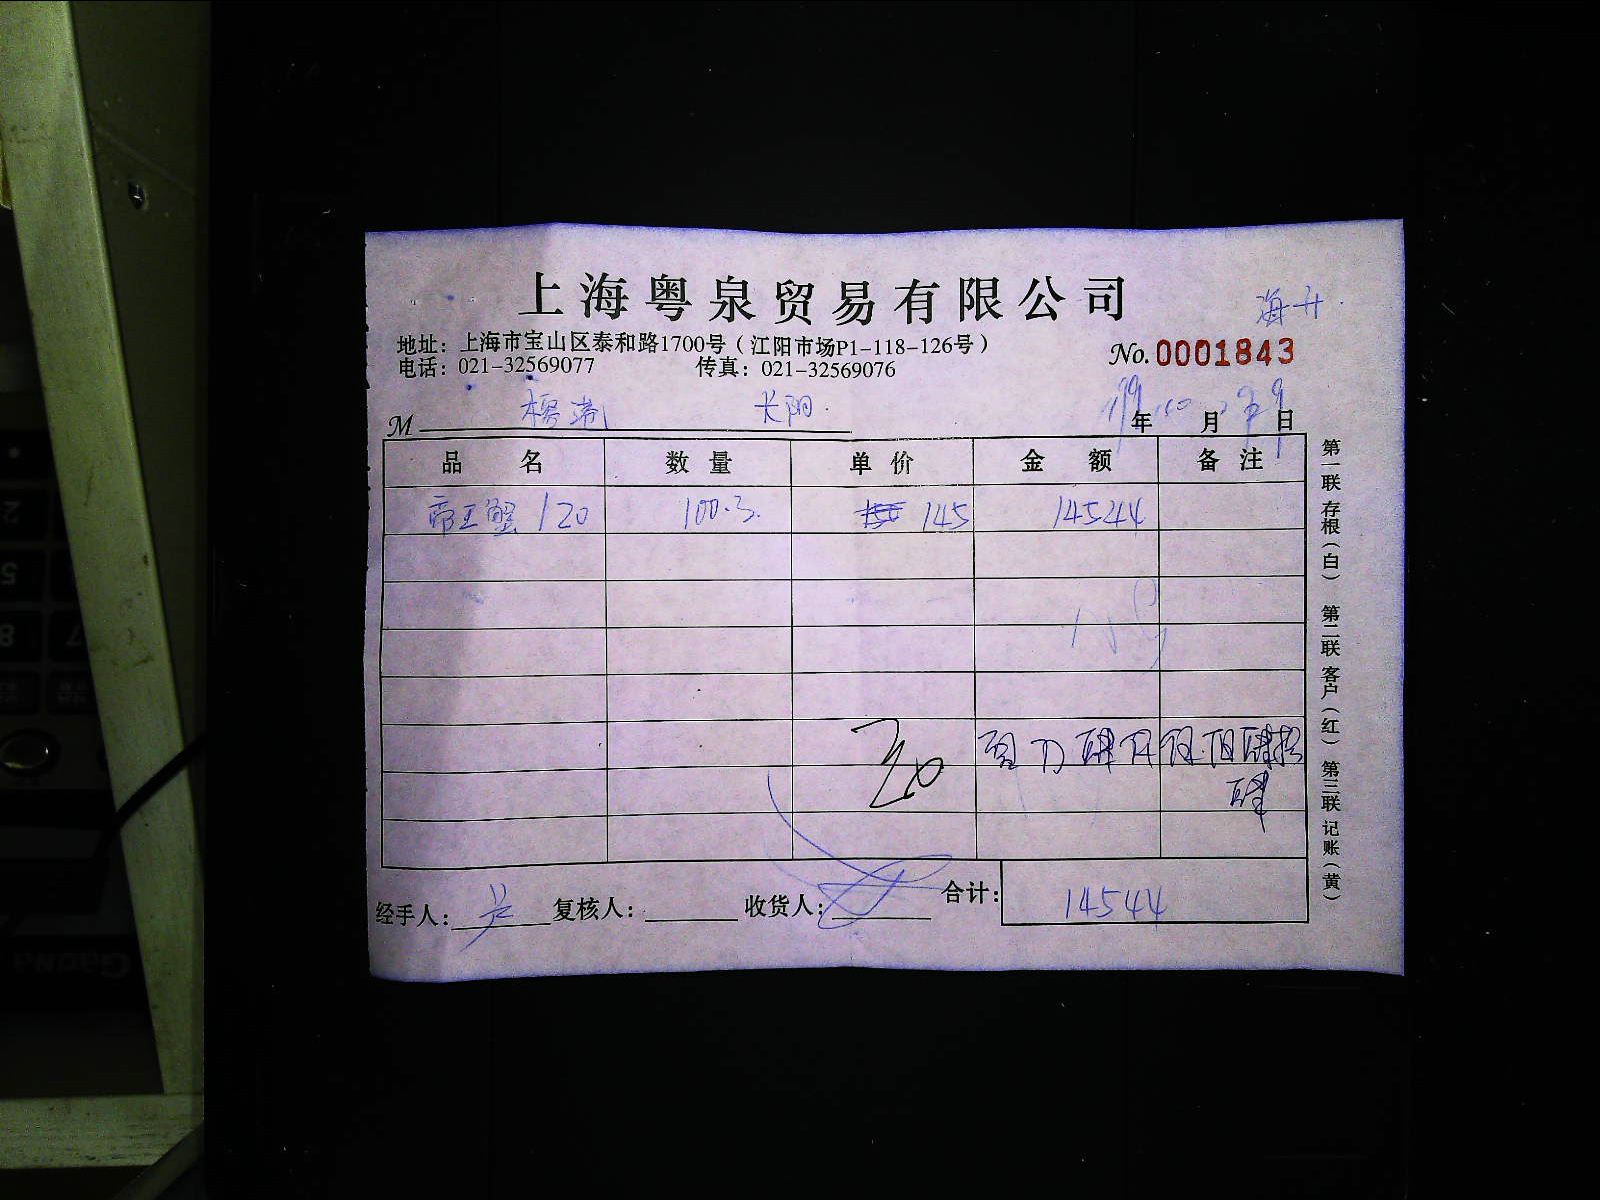 上海粤泉贸易有限公司
海升
地址：上海市宝山区泰和路1700号（江阳市场P1-118-126号）
No. 0001843
电话：021-32569077 传真：021-32569076
M 长阳 年 月 日
品名 数量 单价 金额 备注
帝王蟹 120 100.3 145 14544
壹万肆仟伍佰肆拾
肆
经手人： 复核人： 收货人： 合计： 14544
第一联 存根（白） 第二联 客户（红） 第三联 记账（黄）